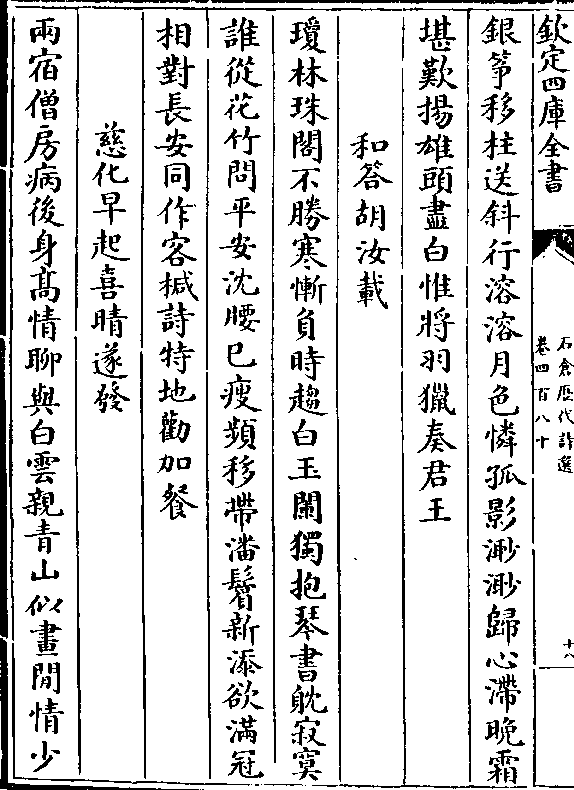 欽定四庫全書
石倉歷代詩選
卷四百八十
十八
銀筝移柱送斜行溶溶月色憐孤影渺渺歸心滯晚霜
堪歎揚雄頭盡白惟將羽獵奏君王
和答胡汝載
瓊林珠閣不勝寒慚負時趨白玉闌獨抱琴書躭寂寞
誰從花竹問平安沈腰已瘦頻移帶潘鬢新添欲滿冠
相對長安同作客椷詩特地勸加餐
慈化早起喜晴遂發
兩宿僧房病後身高情聊與白雲親青山似畫閒情少